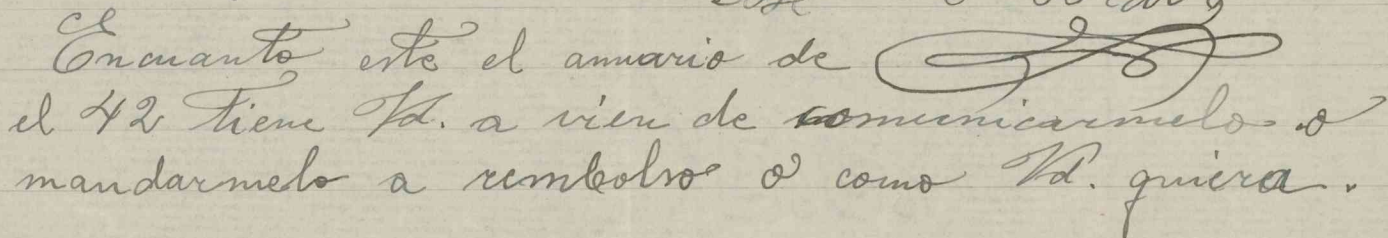 Encuanto este el anuario de
el 42 tiene Vd. a vien de comunicarmelo o
mandarmelo a rembolso o como Vd. quiera.